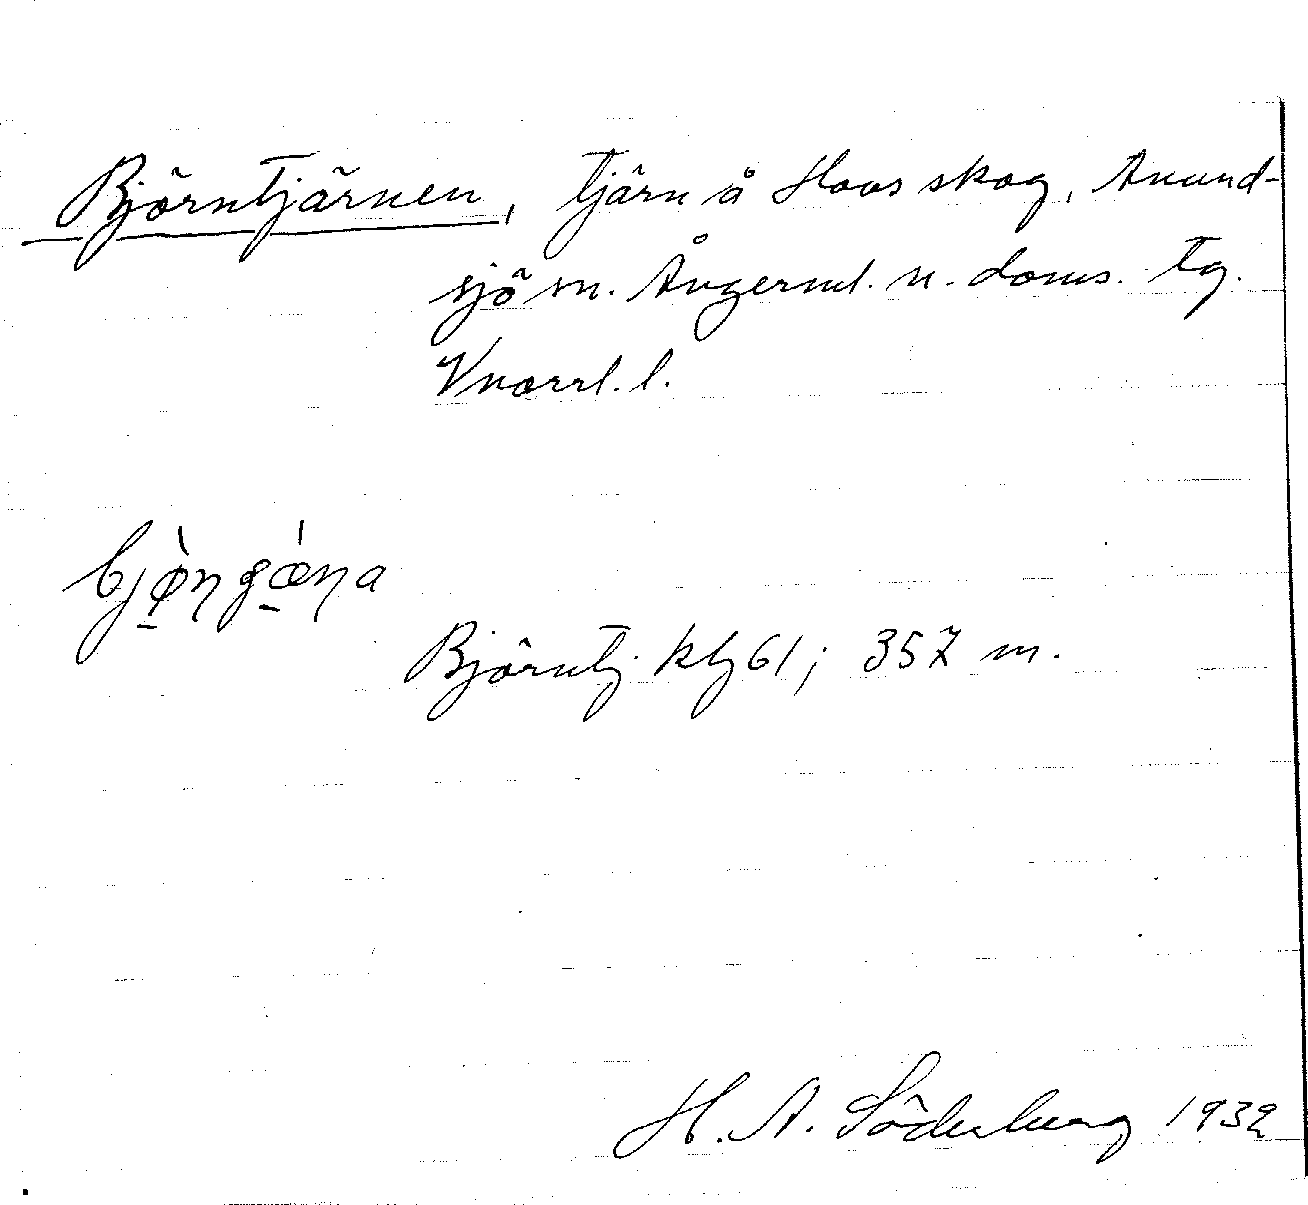 Björntjärnen, tjärn å Hoas skog, Anund-
sjö sn. Ångerml. n. doms. tg.
Vnorrl. l.
Björntj. ktg 61; 357 m.
H. A. Söderberg 1932